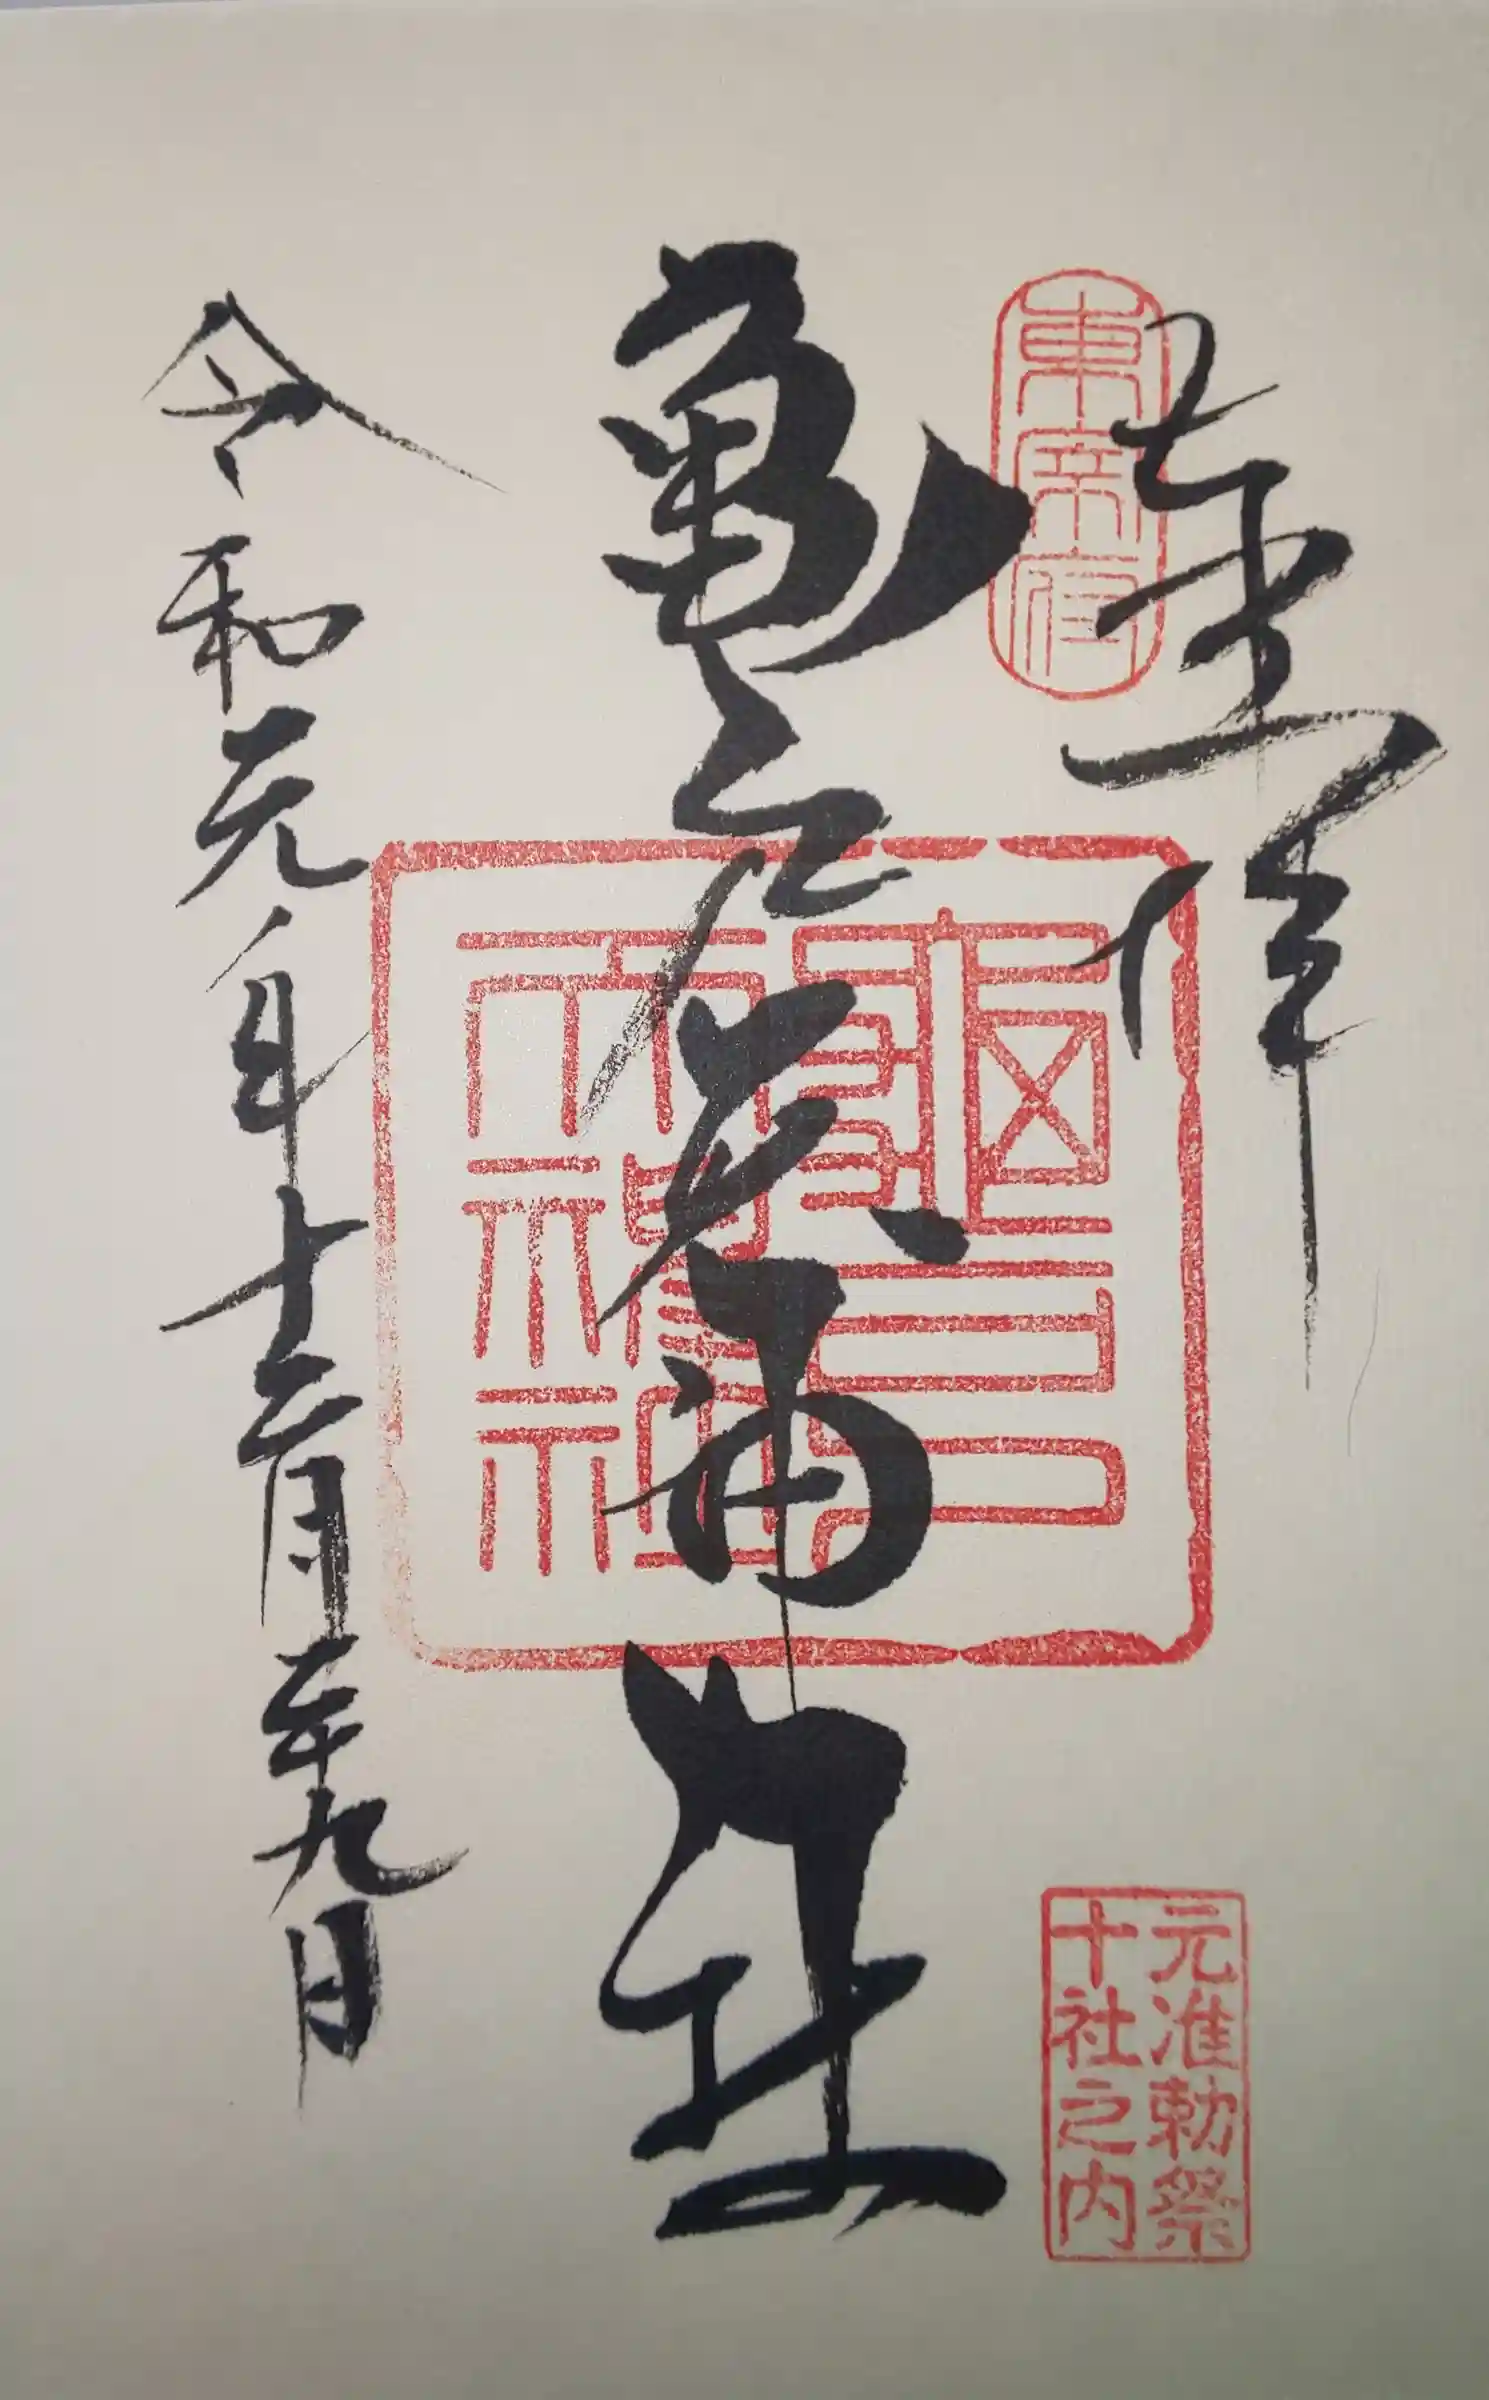 奉拝
東宰府
亀戸天神社
亀戸
天神社
元准勅祭
十社之内
令和元年十二月二十九日